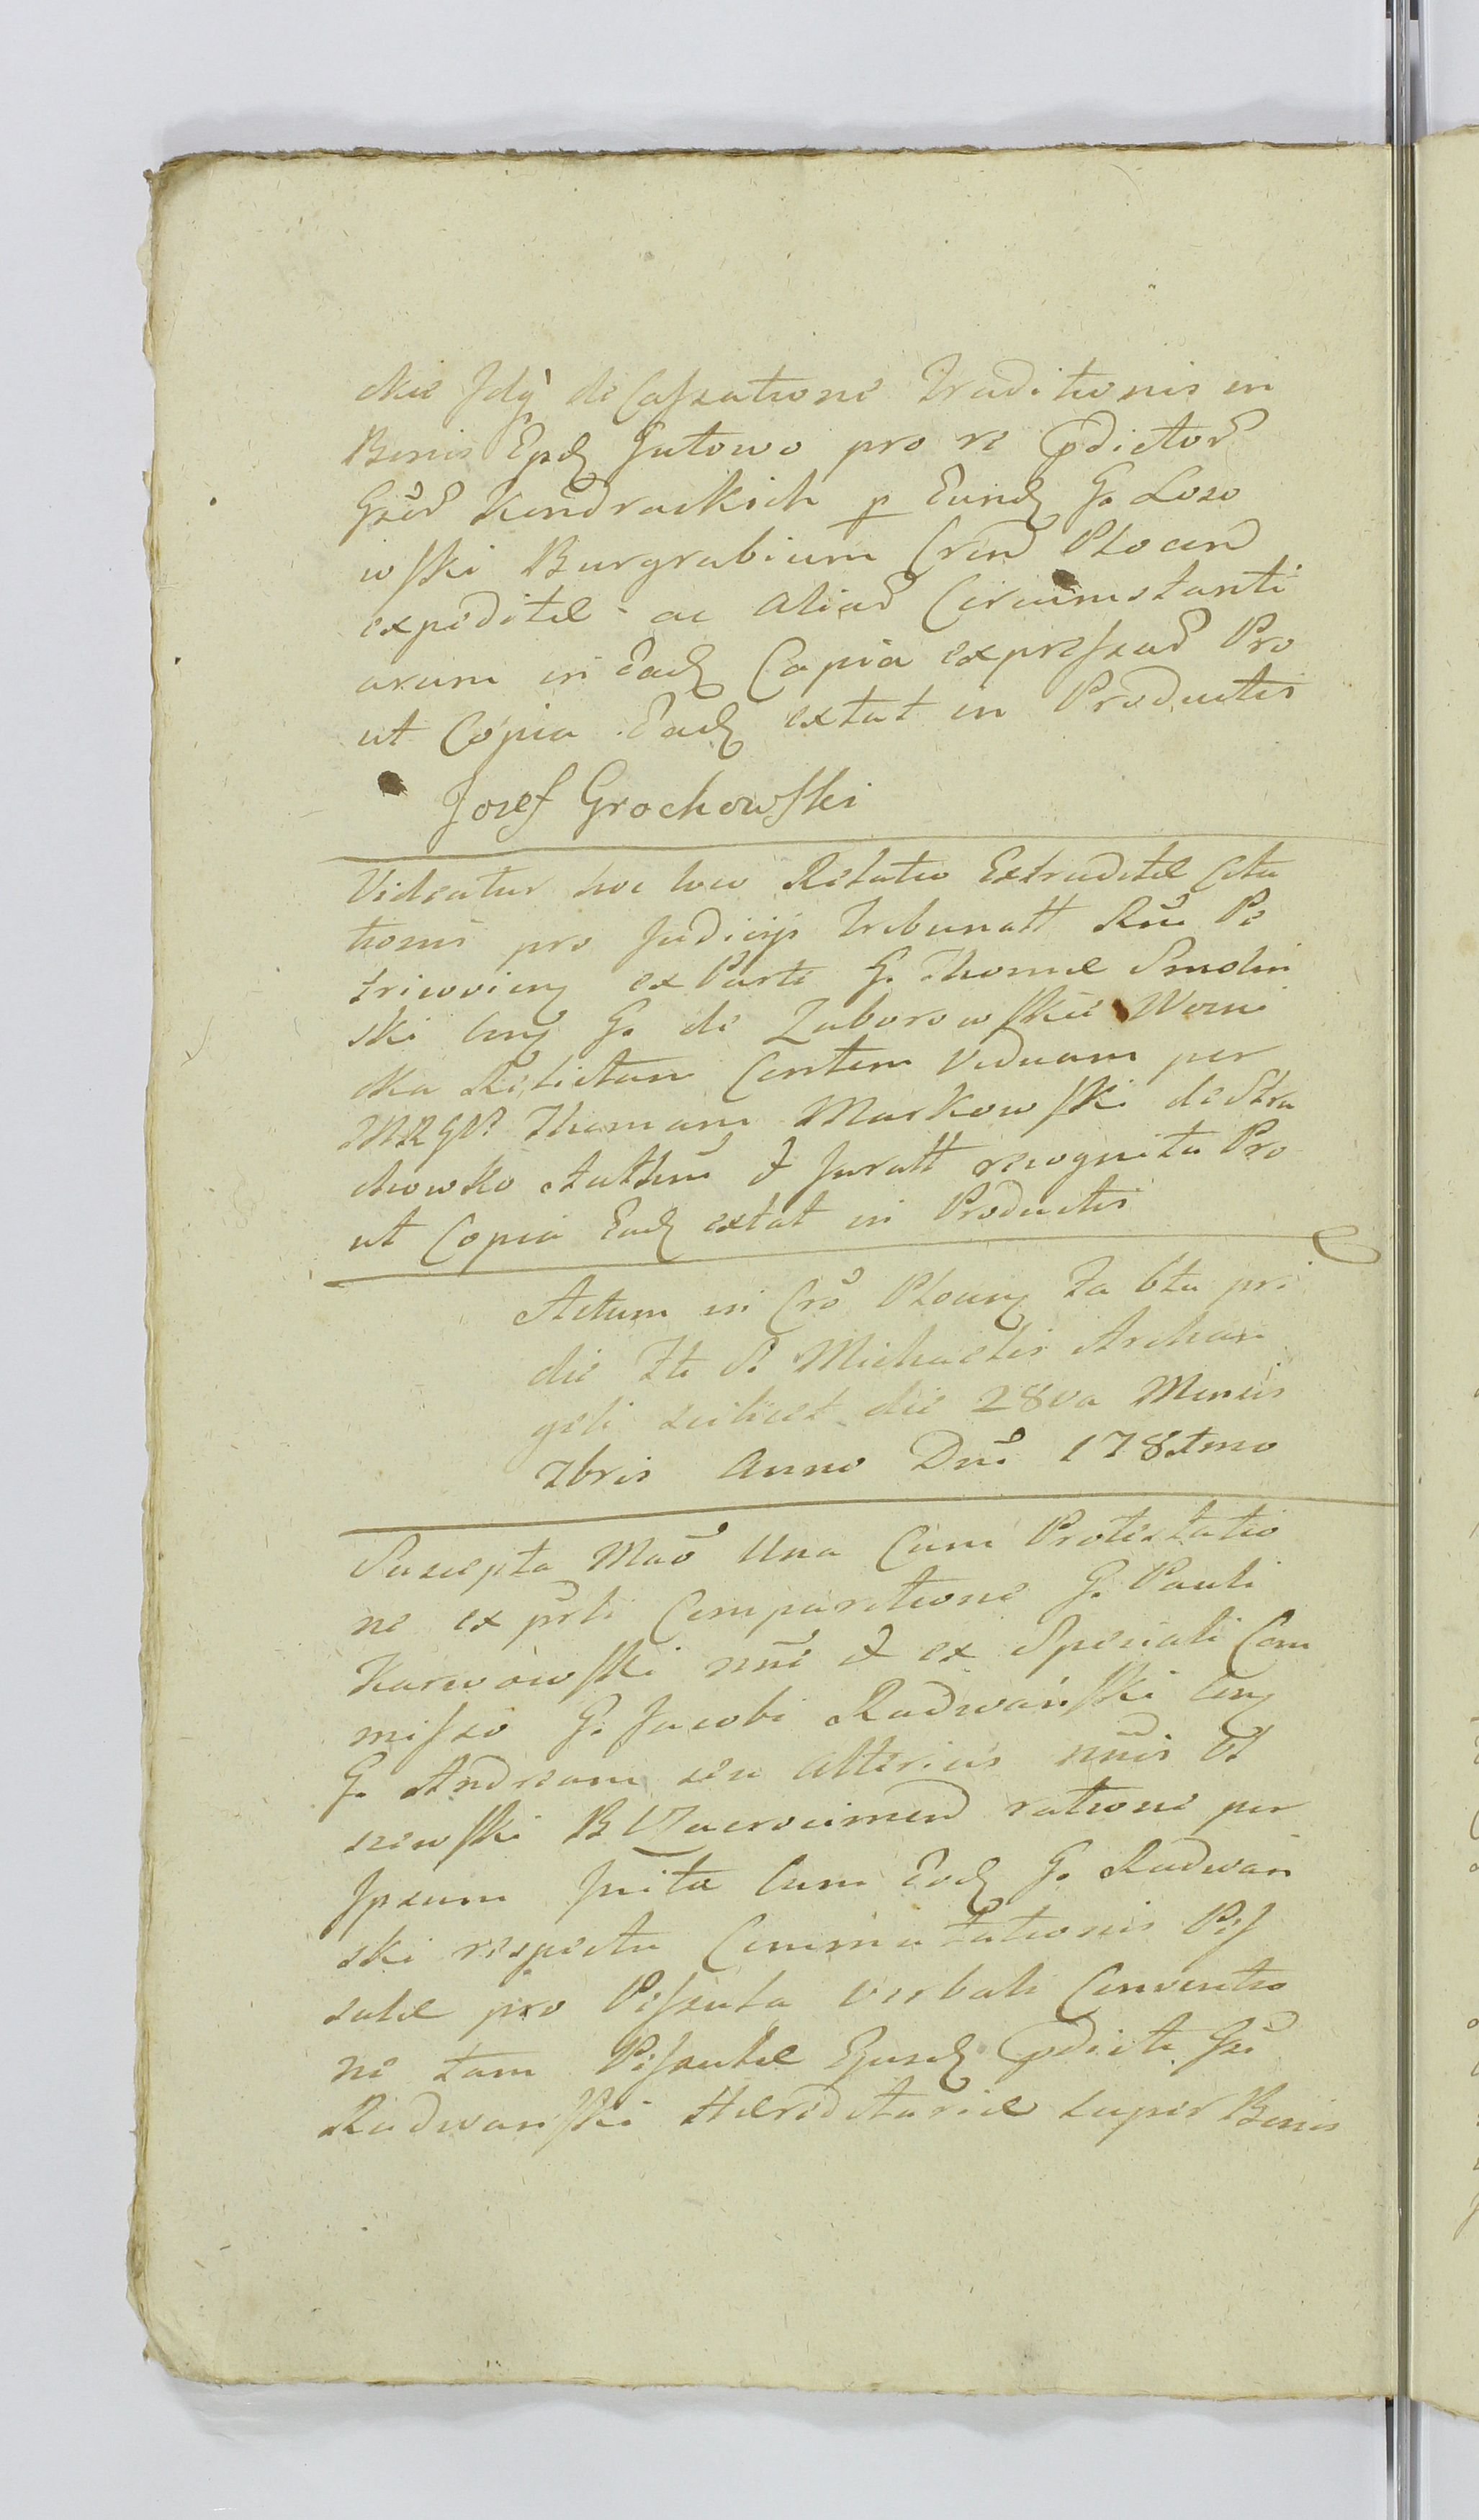 ckie Jdq̀ de Cassatione Traditionis in
Bonis Epdz Gutowo pro re pdictor
Gsor Kendrackich p Eundz G. Loso
wski Burgrabium Cren Plocen
expeditæ - ac aliar Circumstanti
arum in Eadz Copia expressar Pro
ut Copia Eadz extat in Productis
Jozef Grochowski
Videatur hoc loco Relatio Extraditæ Cita
tionis pro Judicijs Tribunatt Rni Pe
tricovien ex Parte G. Thomæ Smolin
ski G. de Zaborowskie
cka Relictam Viduam per
Thomam Markowski de Stra
chowko Authm & Juratt recognita Pro
ut Copia Eadz extat in Productis
Actum in Cro Plocen Sabbtu pri
die S. Michaelis Archan
geli scilicet die 28va Mensis
7bris Anno Dni
Suscepta Mao Una Cum Protestatio
ne ex Comparitione G. Pauli
Karwowski nne & ex Speciali Com
misso G. Jacobi Radwański
G. Andream seu alterius nnis
ratione per
Ipsum Inita Cum Eodz G. Radwań
ski respectu Commutationis Pis
sulæ pro Pissula verbali Conventio
ne tam Pissulæ Ejusdz pdicti Gsi
Radwański Hæreditariæ super Bonis